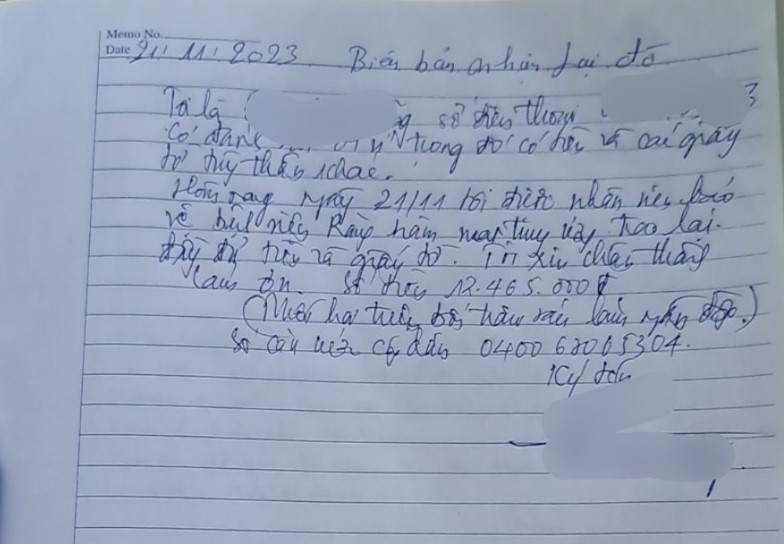 Memo No.
Date 21.11.2023 Biên bản nhận lại đồ
Tôi là số điện thoại
Có đánh trong đó có tiền và các giấy
tờ tùy thân khác.
Hôm nay ngày 21/11 tôi được nhân viên báo
về nhân viên trao lại
đầy đủ tiền và giấy tờ. Tôi xin chân thành
cảm ơn. Số tiền 12.465.000đ
(Mười hai triệu bốn trăm sáu lăm ngàn đồng.)
Số căn cước công dân
Ký tên